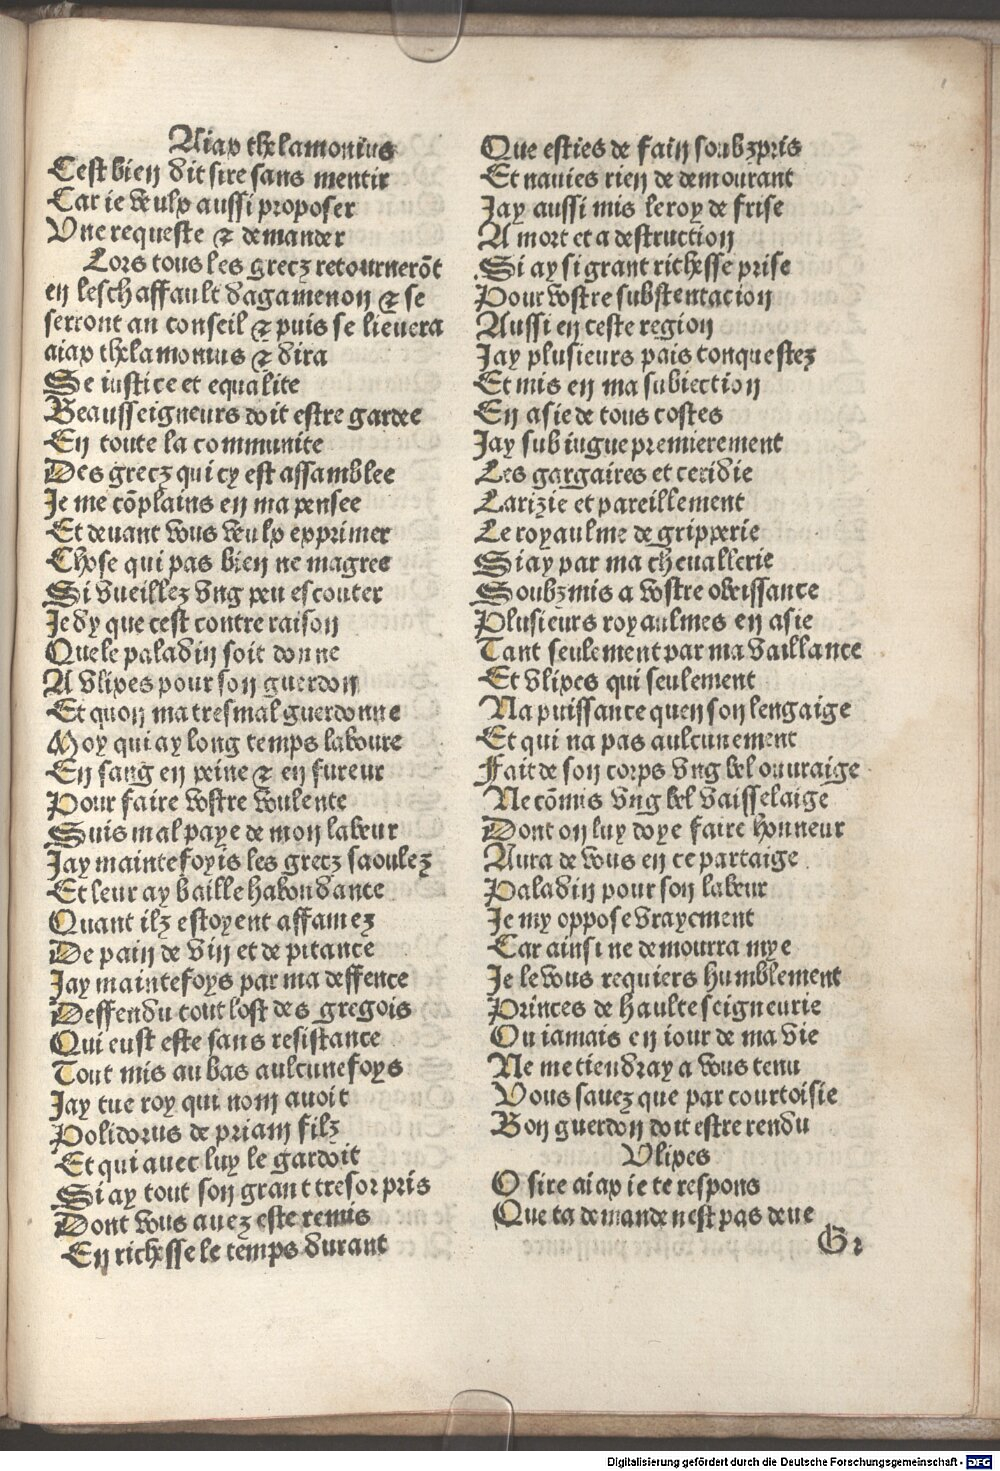 Aiax thelamonius
Cest bien dit sire sans mentir
Car ie veulx aussi proposer
Vne requeste ⁊ demander
Lors tous les grecz retournerõt
en leschaffault dagamenon ⁊ se
serront au conseil ⁊ puis se lieuera
aiax thelamonius ⁊ dira
Se iustice et equalite
Beausseigneurs doit estre gardee
En toute la communite
Des grecz qui cy est assamblee
Je me cõplains en ma pensee
Et deuant vous veulx exprimer
Chose qui pas bien ne magree
Si vueillez vng peu escouter
Je dy que cest contre raison
Que le paladin soit donne
A vlixes pour son guerdon
Et quon ma tresmal guerdonne
Moy qui ay long temps laboure
En sang en peine ⁊ en fureur
Pour faire vostre voulente
Suis mal paye de mon labeur
Jay maintefoyis les grecz saoulez
Et leur ay baille habondance
Quant ilz estoyent affamez
De pain de vin et de pitance
Jay maintefoys par ma deffence
Deffendu tout lost des gregois
Qui eust este sans resistance
Tout mis au bas aulcunefoys
Jay tue roy qui nom auoit
Polidorus de priam filz
Et qui auec luy le gardoit
Si ay tout son grant tresor pris
Dont vous auez este remis
En richesse le temps durant
Que esties de fain soubzpris
Et nauies rien de demourant
Jay aussi mis le roy de frise
A mort et a destruction
Si ay si grant richesse prise
Pour vostre substentacion
Aussi en ceste region
Jay plusieurs pais conquestez
Et mis en ma subiection
En asie de tous costes
Jay subiugue premierement
Les gargaires et ceridie
Larizie et pareillement
Le royaulme de gripperie
Si ay par ma cheuallerie
Soubzmis a vostre obeissance
Plusieurs royaulmes en asie
Tant seulement par ma vaillance
Et vlixes qui seulement
Na puissance quen son lengaige
Et qui na pas aulcunement
Fait de son corps vng bel ouuraige
Ne cõmis vng bel vaisselaige
Dont on luy doye faire honneur
Aura de vous en ce partaige
Paladin pour son labeur
Je my oppose vrayement
Car ainsi ne demourra mye
Je le vous requiers humblement
Princes de haulte seigneurie
Ou iamais en iour de ma vie
Ne me tiendray a vous tenu
Vous sauez que par courtoisie
Bon guerdon doit estre rendu
Vlixes
O sire aiax ie te respons
Que ta demande nest pas deue
G2
Digitalisierung gefördert durch die Deutsche Forschungsgemeinschaft - DFG